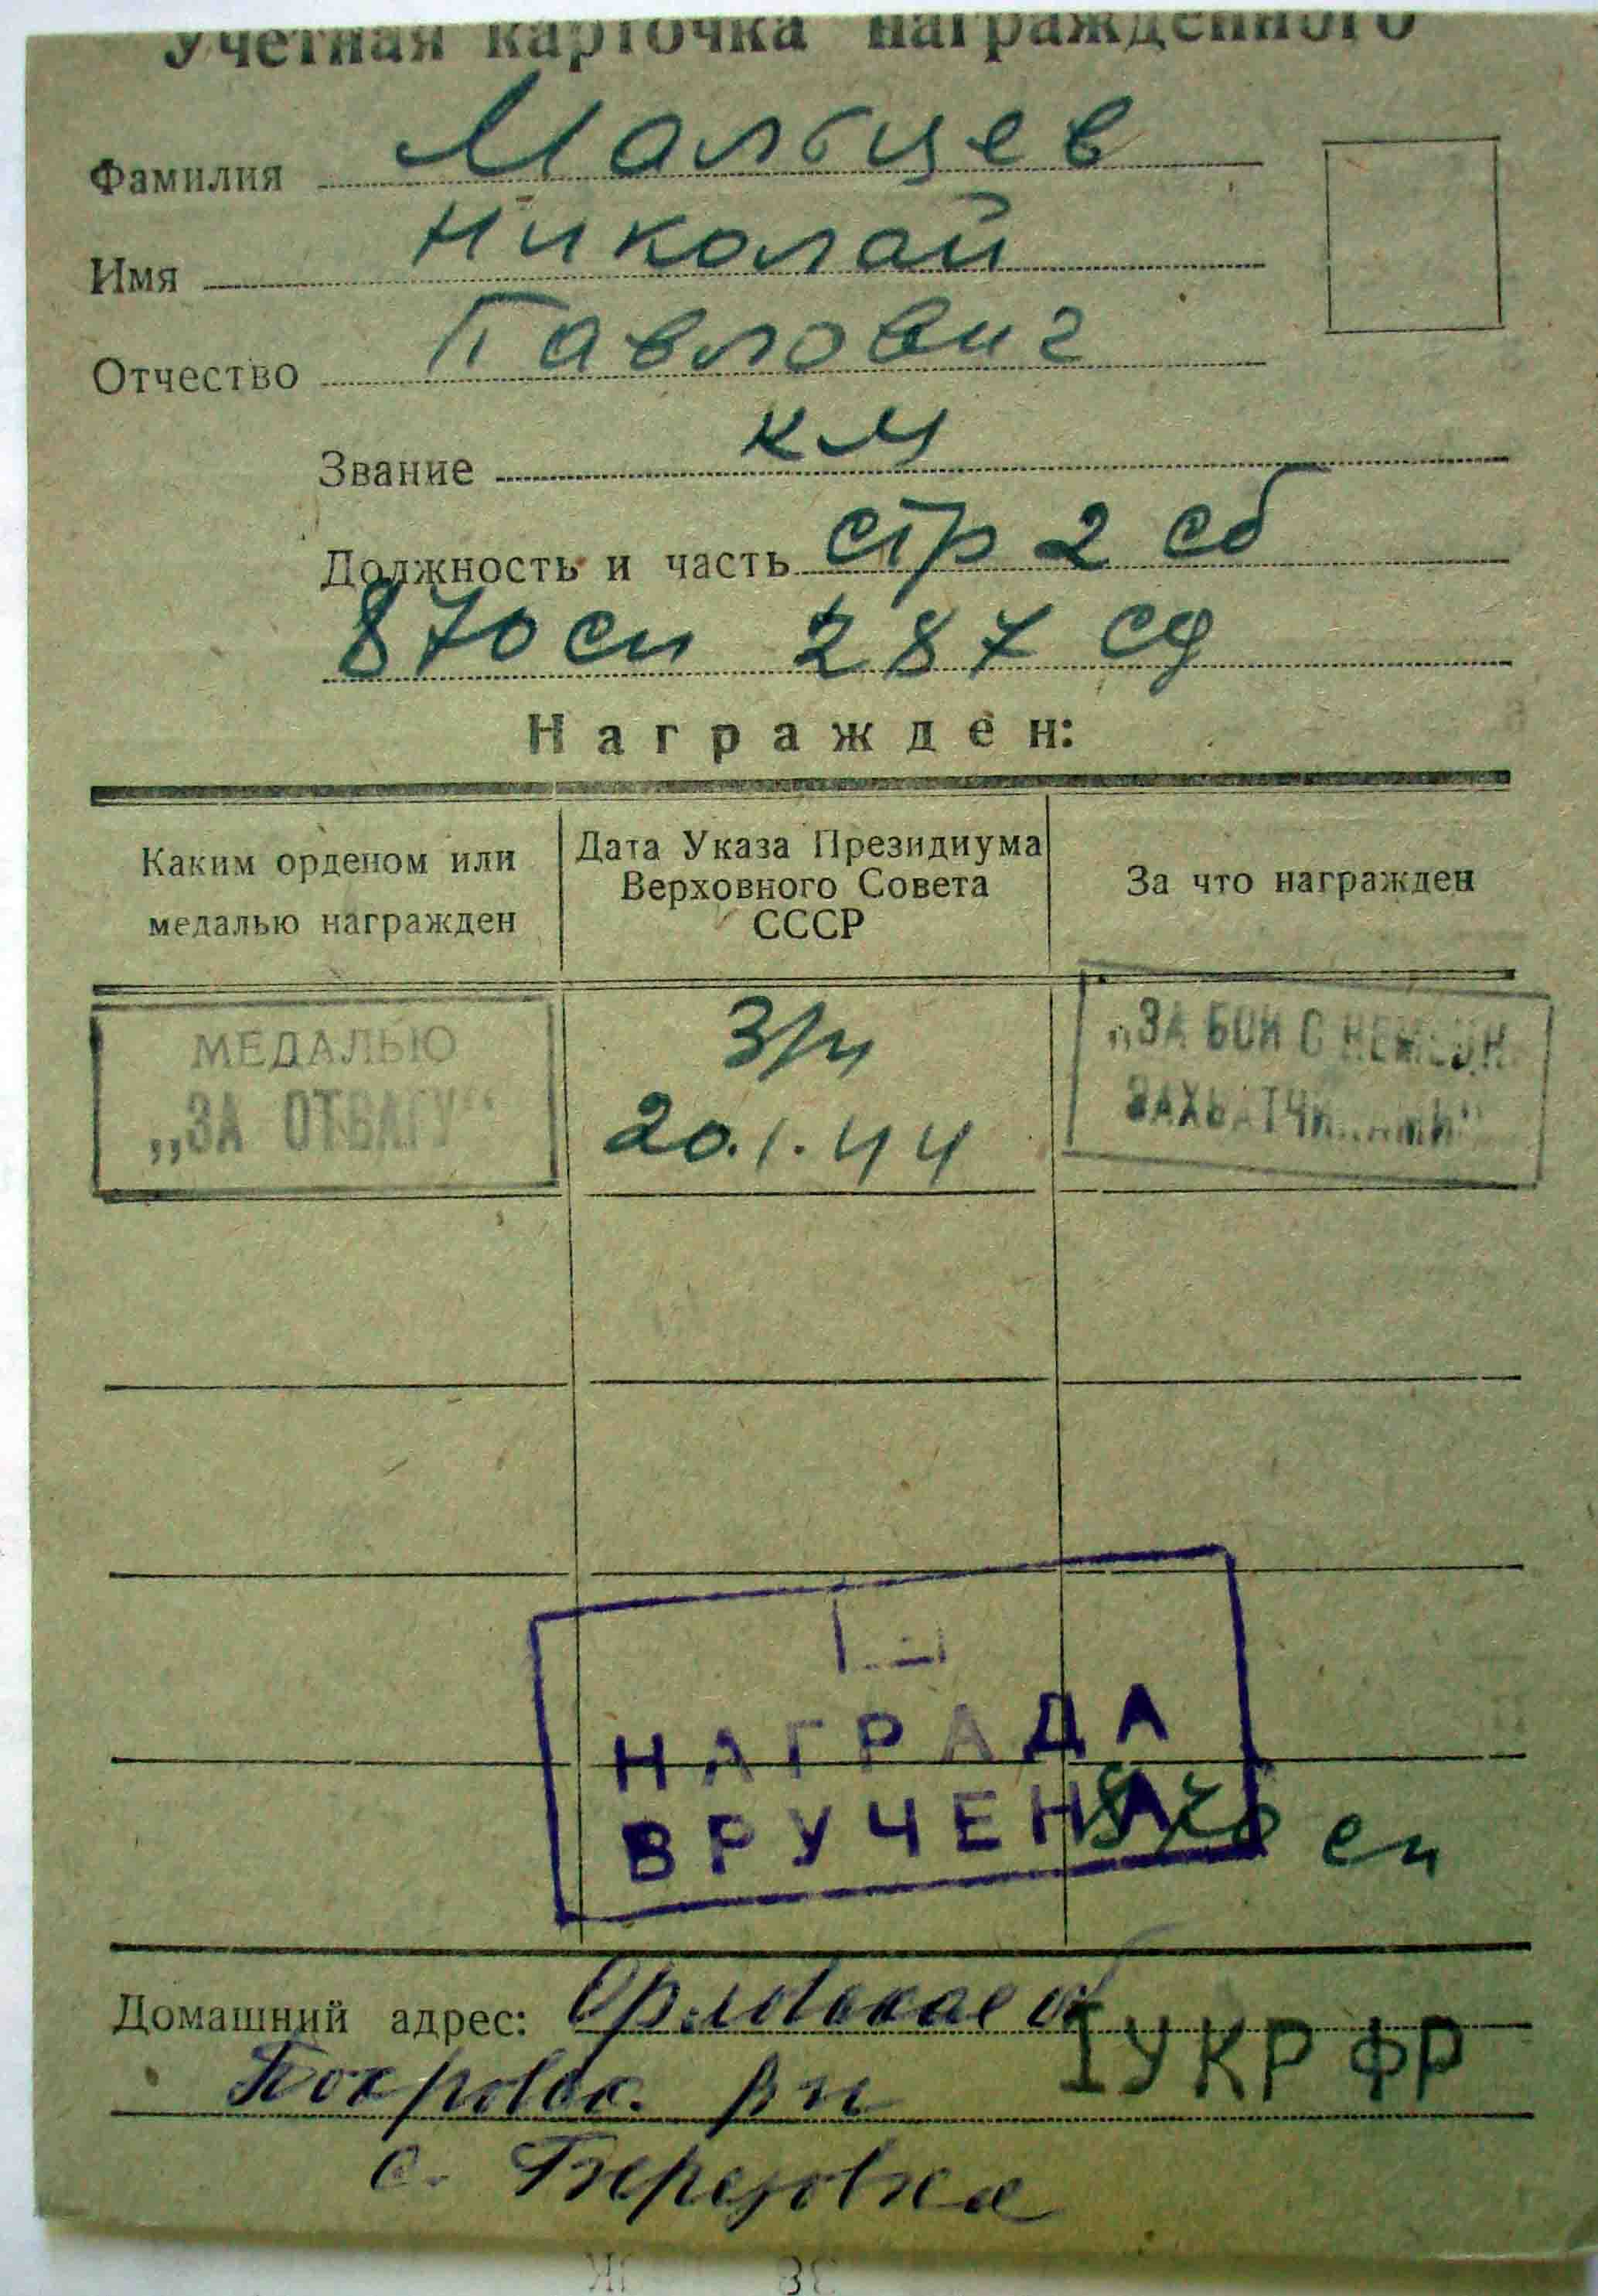 Учетная карточка награжденного
Фамилия Мальцев
Имя Николай
Отчество Павлович
Звание км
Должность и часть стр 2 сб
870 сп 287 сд
Награжден:
Каким орденом или медалью награжден
Дата Указа Президиума Верховного Совета СССР
За что награжден
МЕДАЛЬЮ
„ЗА ОТВАГУ“
3/н
20.1.44
„ЗА БОИ С НЕМЕЦК.
ЗАХВАТЧИКАМИ“
НАГРАДА
ВРУЧЕНА
870 сп
Домашний адрес: Орловская об
1 УКР ФР
Покровск. рн
с. Березовка